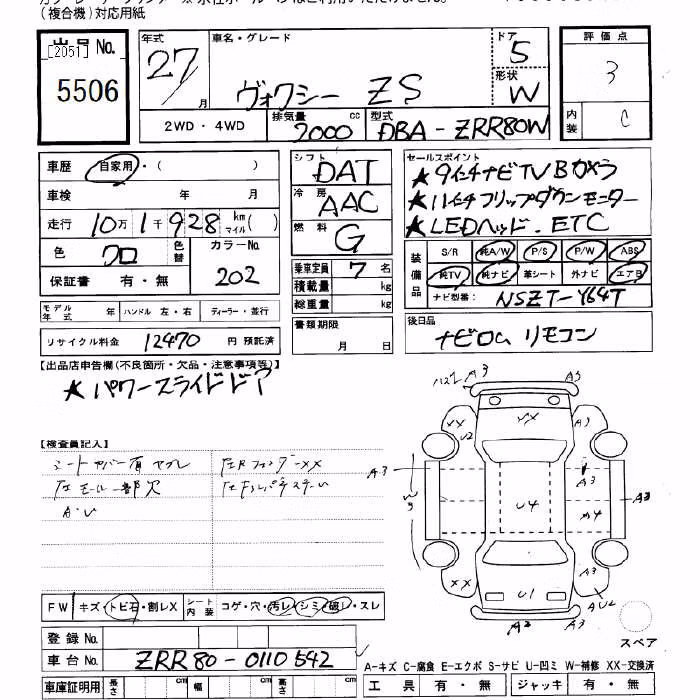 (複合機)対応用紙
出品 No. [2051]
5506
年式 27 月
車名・グレード
ヴォクシー ZS
ドア 5
形状 W
評価点 3
内装 C
2WD・4WD
排気量 2000 cc
型式 DBA-ZRR80W
車歴 自家用・( )
車検 年 月
走行 10万 1千 928 km マイル( )
色 クロ 色替
カラーNo. 202
保証書 有・無
シフト DAT
冷房 AAC
燃料 G
乗車定員 7 名
積載量 kg
総重量 kg
セールスポイント
★9インチナビTVBカメラ
★11インチフリップダウンモニター
★LEDヘッド.ETC
装備品
S/R 純A/W P/S P/W ABS
純TV 純ナビ 革シート 外ナビ エアB
ナビ型番: NSZT-Y64T
モデル年式 年 ハンドル 左・右 ディーラー・並行
リサイクル料金 12470 円 預託済
書類期限
月 日
後日品
ナビロム リモコン
【出品店申告欄(不良箇所・欠品・注意事項等)】
★パワースライドドア
【検査員記入】
シートカバー有 ヤブレ
左Rフェンダー XX
左モール一部欠
A・U
A3
A3
U2
XX
A3
A3
W3
A3
U4
A4
A3
XX
U1
A3
AU2
A2
A3
スペア
FW キズ・トビ石・割レX
シート内装 コゲ・穴・汚レ・シミ・破レ・スレ
登録 No.
車台 No. ZRR80-0110542
A-キズ C-腐食 E-エクボ S-サビ U-凹ミ W-補修 XX-交換済
車庫証明用 長さ cm 幅 cm 高さ cm
工具 有・無 ジャッキ 有・無